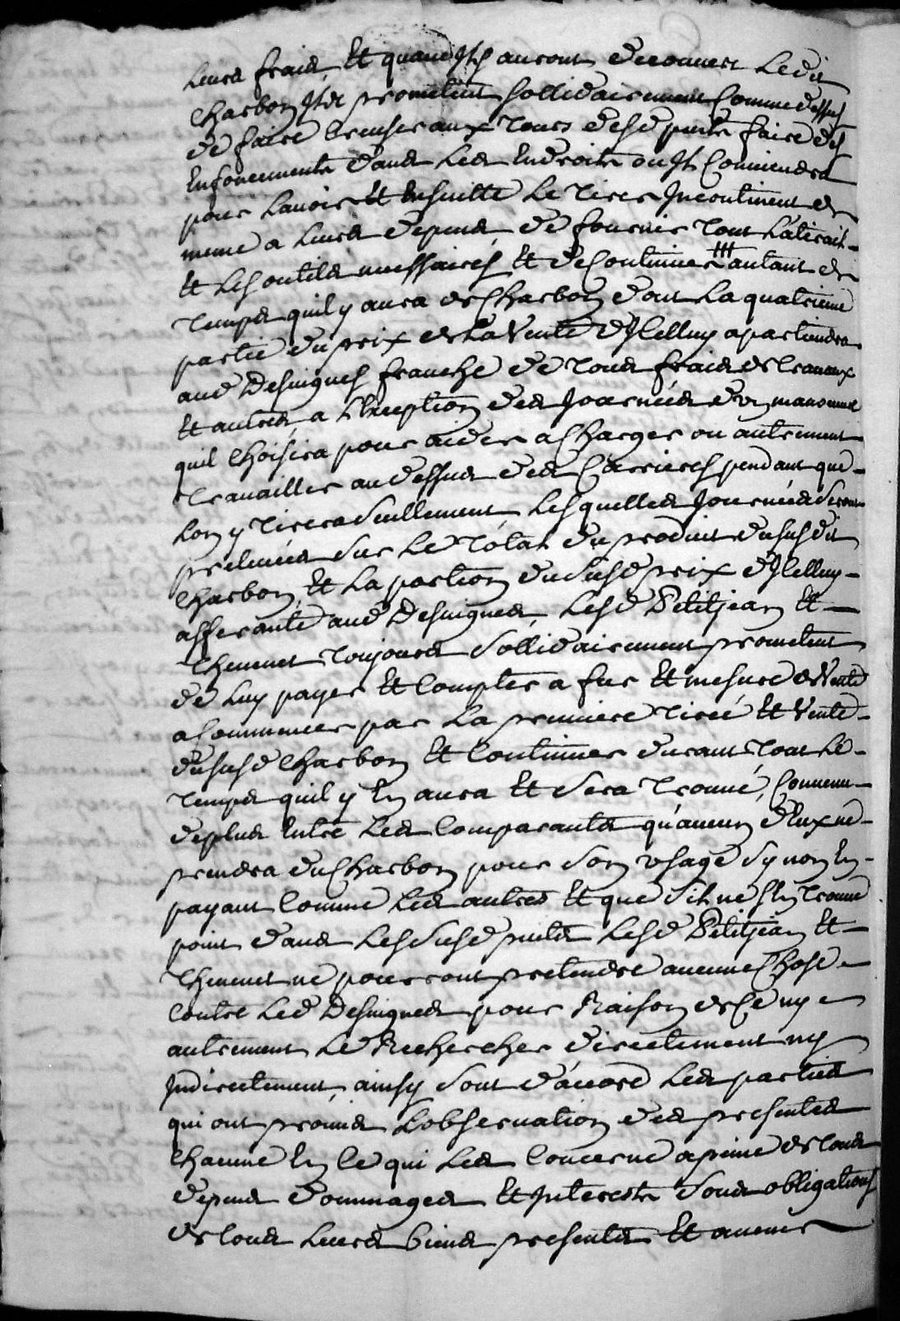 Leurs frais, Et quand Ils auront decouvert Ledit
Charbon Ils promettent sollidairement Comme dessus
de faire creuser aux tours desd puits faire des
Enfoncements dans Les Endroits ou Il Conviendra
pour Lavoir Et Ensuitte Le tirer Incontinent de
meme a Leurs depens de fournir tout Latirail
Et Les outils necessaires Et de Continuer autant de
temps quil y aura de Charbon dont La quatrieme
partie du prix de La Vente Diceluy apartiendra
aud Desuignes franche de tous frais de travaux
Et autres a Lexeption des Journées dun manoeuvre
quil Choisira pour aider a Charger ou autrement
travailler au dessus des Carrieres pendant que
Lon y tirera seullement Lesquelles Journées seront
prelevées sur Le total du produit du susdit
Charbon Et La portion du susd prix Dicelluy
afferante aud Desuignes, Lesd Petitjean Et
Thevenet toujours sollidairement promettent
de Luy payer Et Compter a fur Et mesure de Vente
a Commencer par La premiere tirée Et Vente
dususd Charbon Et Continuer durant tout Le
temps quil y En aura Et sera trouvé, Convenu
deplus Entre Les Comparants qu'aucun d'Eux ne
prendra du Charbon pour son usage sy non En
payant Comme Les autres Et que sil ne sen trouve
point dans Les susd puits Lesd Petitjean Et
Thevenet ne pourront pretendre aucune Chose
Contre Led Desuignes pour Raison de Ce ny
autrement Le Rechercher directement ny
Indirectement, ainsy sont d'acord Les parties
qui ont promis Lobservation des presentes
Chacune En Ce qui Les Concerne a peine de tous
depens dommages Et Interests sous obligations
de tous Leurs biens presents Et avenir